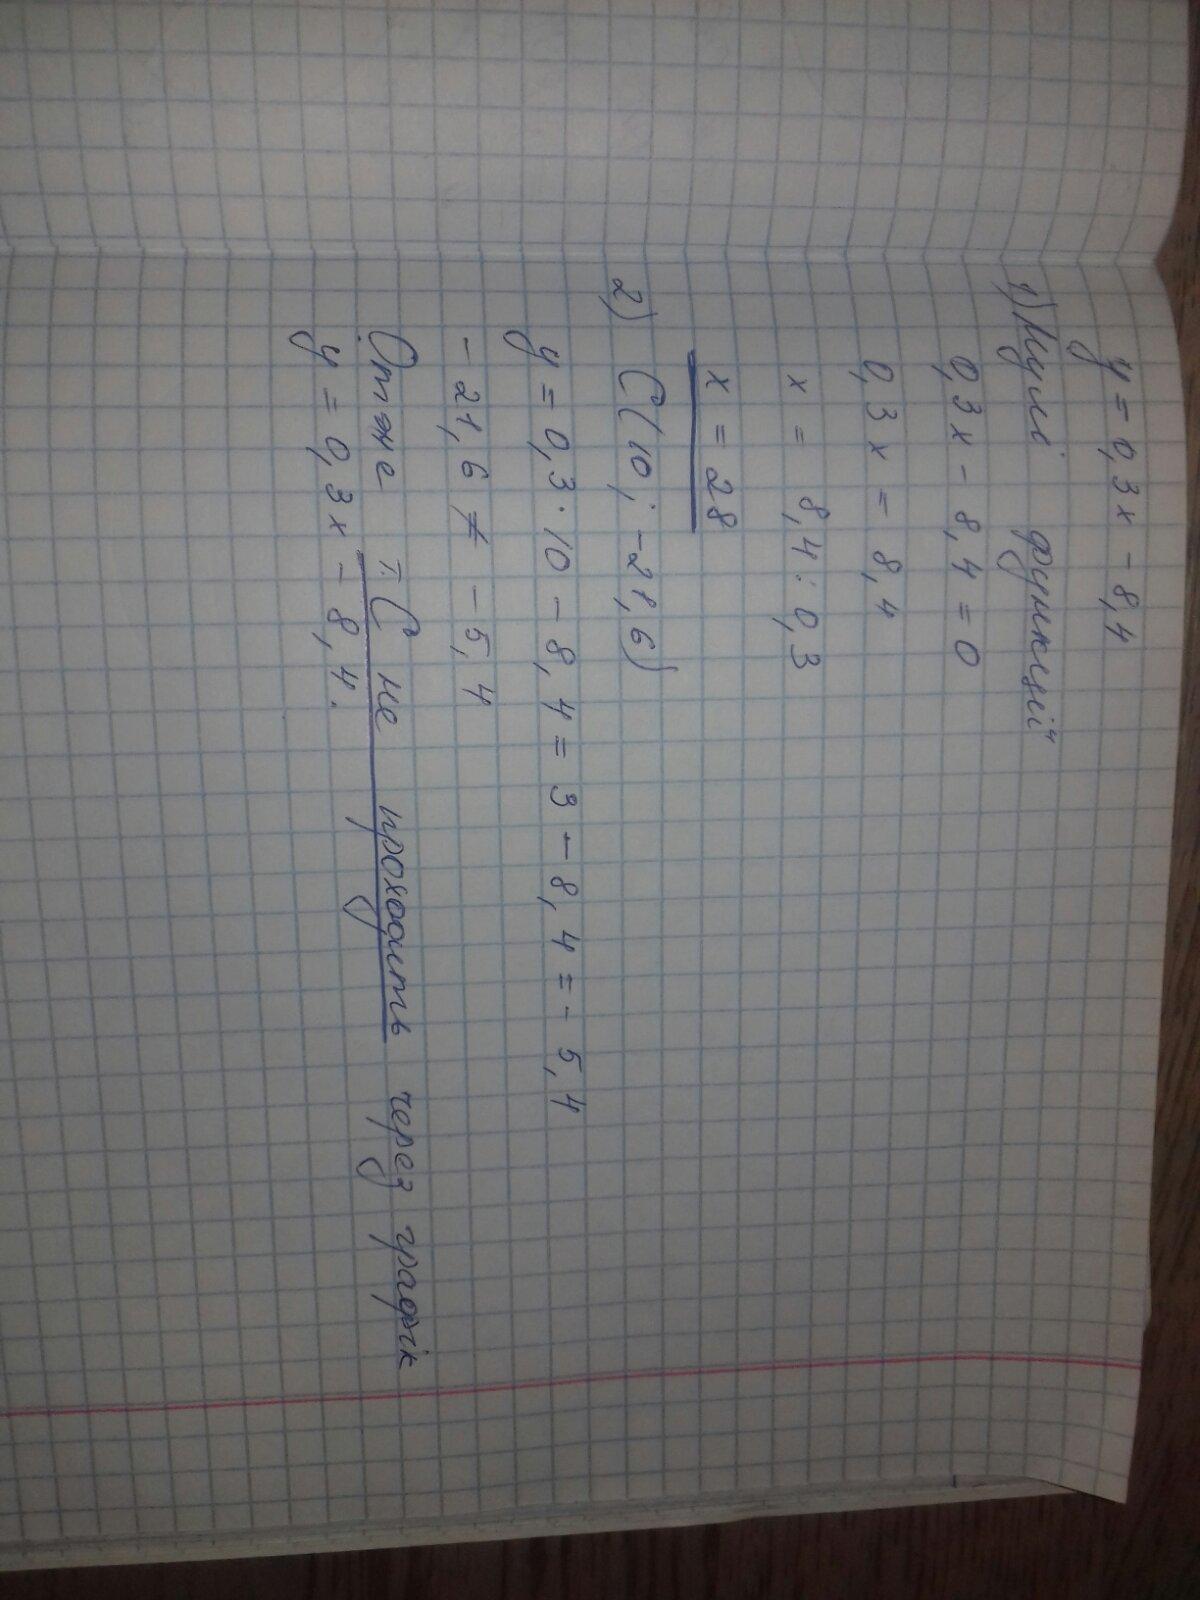 y = 0,3x - 8,4
1) Нулі функції"
0,3x - 8,4 = 0
0,3x = 8,4
x = 8,4 : 0,3
x = 28
2) C(10; -21,6)
y = 0,3 · 10 - 8,4 = 3 - 8,4 = - 5,4
- 21,6 ≠ - 5,4
Отже т. C не проходить через графік
y = 0,3x - 8,4.